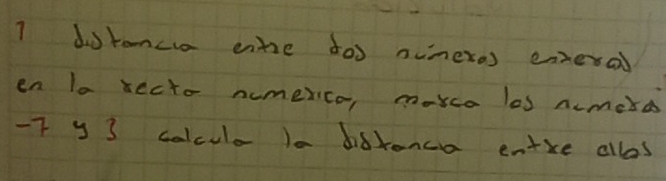 1 distancia entre dos números enteros
en la recta numerica, marca los numeros
-7 y 3 calcula la distancia entre ellos